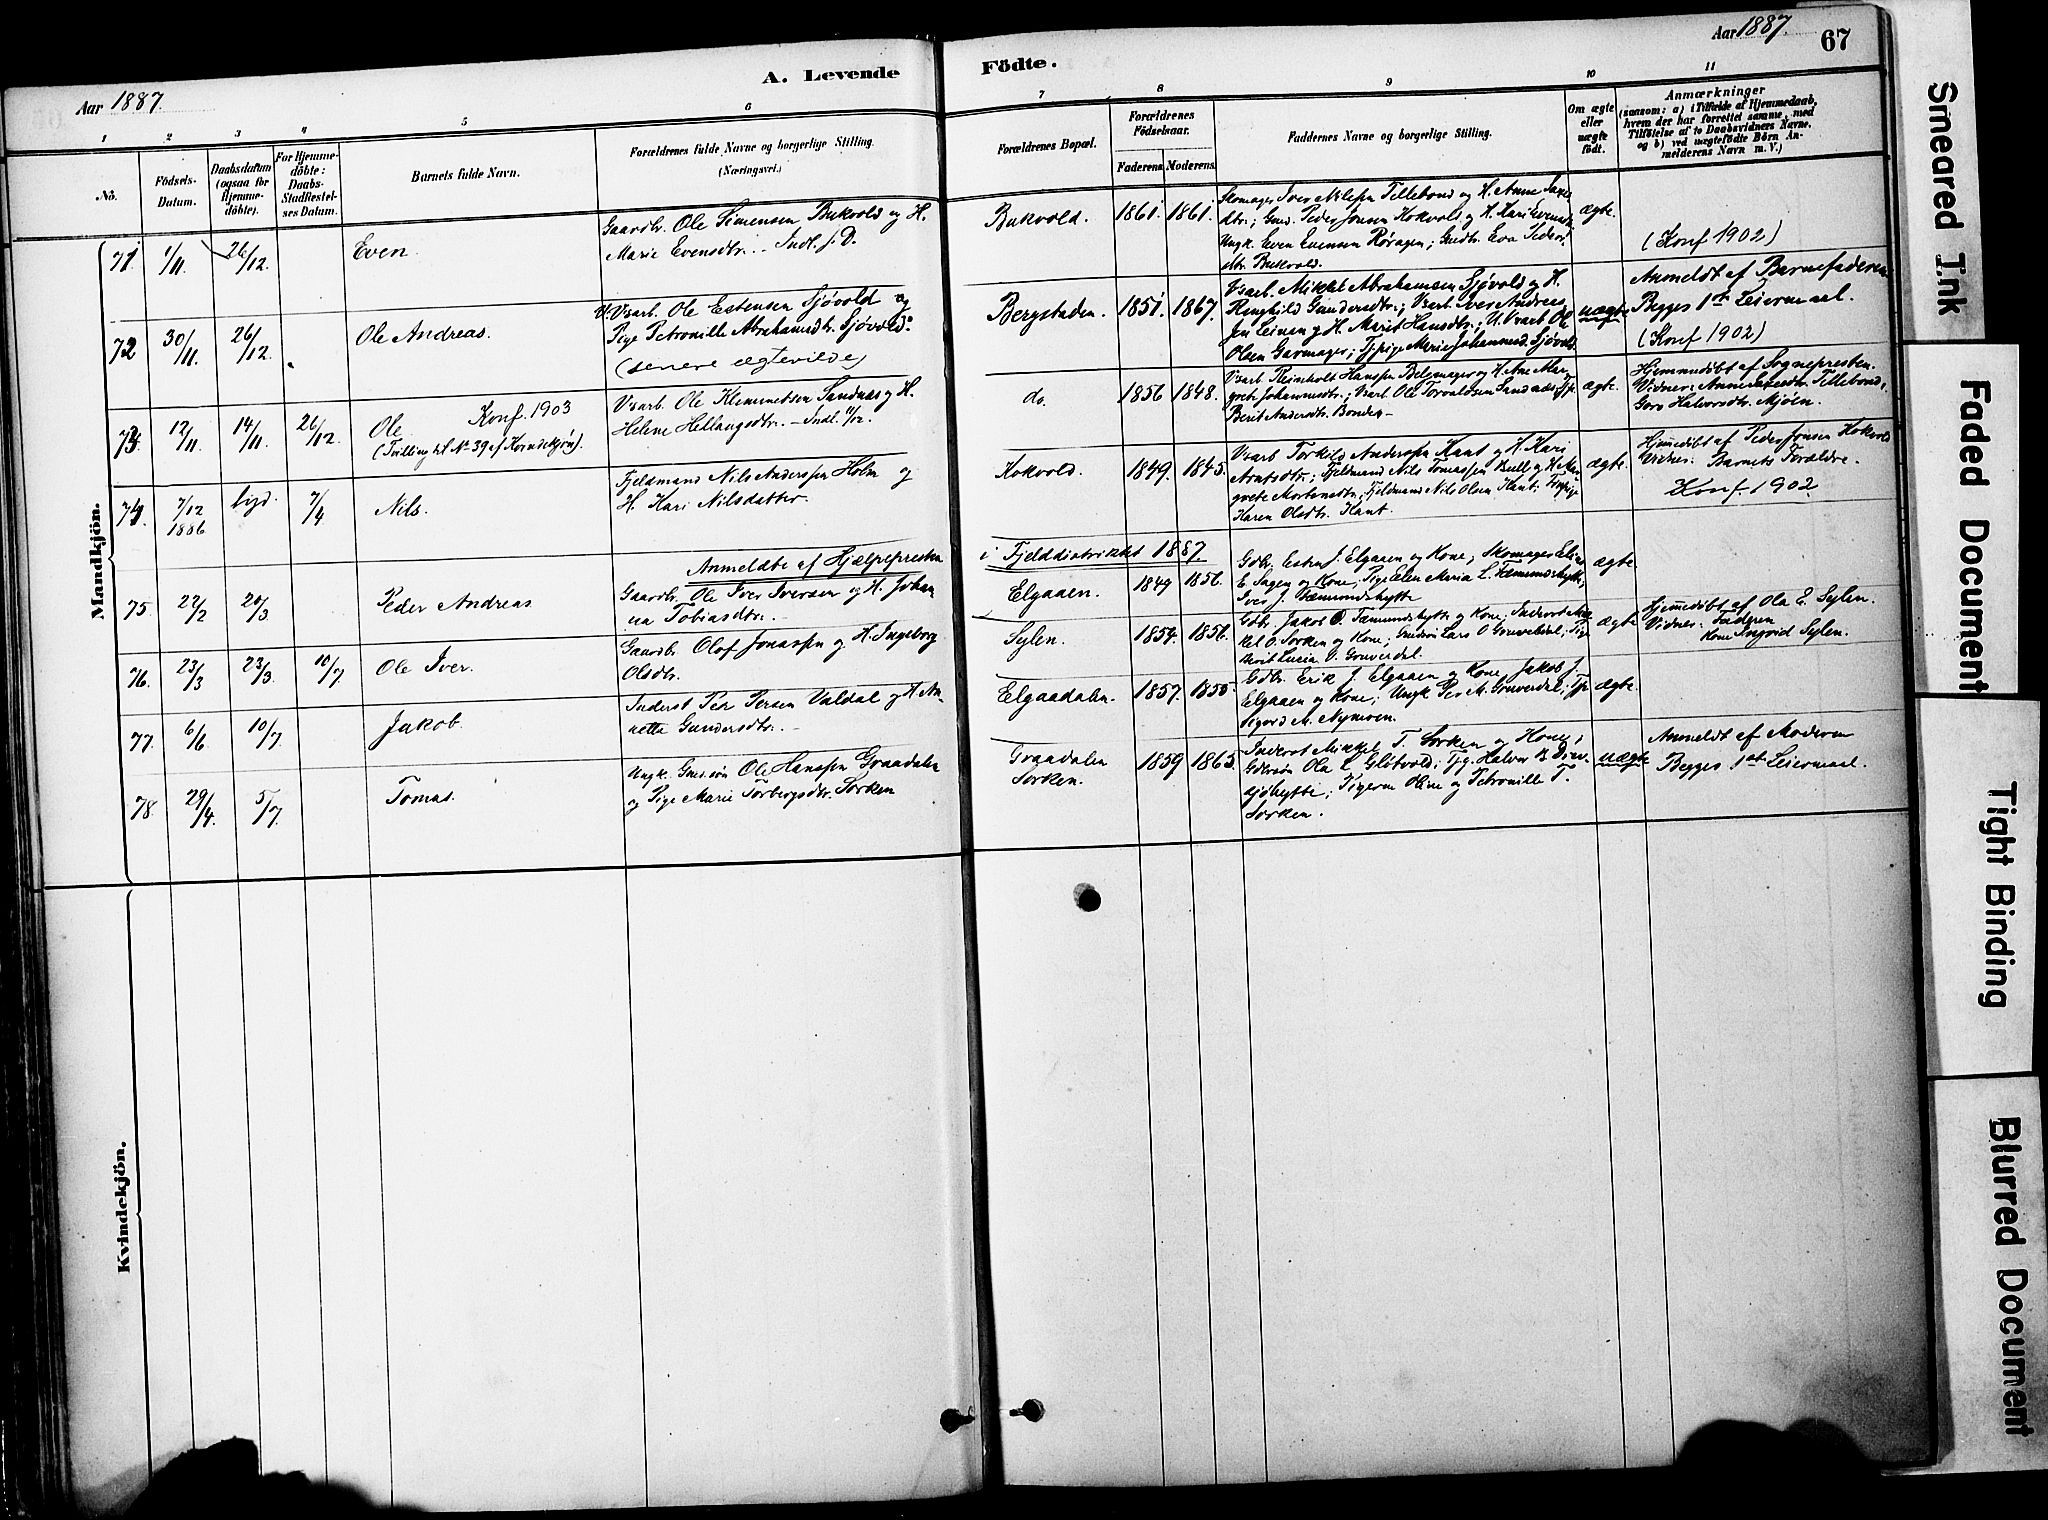 Aar 1887.
A. Levende
Födte.
Aar 1887.
67
1
2
3
4
5
6
7
8
9
10
11
No.
Födsels-
Datum.
Daabsdatum
(ogsaa for
Hjemme-
döbte).
For Hjemme-
döbte:
Daabs-
Stadfæstel-
ses Datum.
Barnets fulde Navn.
Forældrenes fulde Navne og borgerlige Stilling.
(Næringsvei.)
Forældrenes Bopæl.
Forældrenes
Födselsaar.
Faderens.
Moderens.
Faddernes Navne og borgerlige Stilling.
Om ægte
eller
uægte
födt.
Anmærkninger
(saasom: a) i Tilfælde af Hjemmedaab,
hvem der har forrettet samme, med
Tilföielse af to Daabsvidners Navne,
og b) ved uægtefödte Börn An-
melderens Navn m. V.)
Mandkjön.
71
1/11.
26/12.
Even.
Gaardbr. Ole Simensen Bukvold og H.
Marie Evensdtr. - Indl. s. D.
Bukvold.
1861.
1861.
Skomager Iver Nilssen Tillebond og H. Anne
dtr.; Gmd. Peder Jonsen Kokvold og H. Kari Evensd.
Ungk. Even Evensen Røragen; Gmdtr. Eva Peders
dtr. Bukvold.
ægte.
(Konf 1902)
72
30/11.
26/12.
Ole Andreas.
U. Vsarb. Ole Estensen Sjøvold og
Pige Petronille Abrahamsdtr. Sjøvold.
(senere ægtevilde)
Bergstaden.
1851.
1867.
Vsarb. Mikkel Abrahamsen Sjøvold og H.
Ringhild Gundersdtr.; Vsarb. Iver Andreas
Jen Leinan og H. Marit Hansdtr.; U. Vsarb Ole
Olsen Garmager; Tjpige Marie Johannesd. Sjøvold
uægte
Anmeldt af Barnefaderen
Begges 1st Leiermaal.
(Konf 1902)
73.
12/11.
14/11.
26/12.
Ole Konf. 1903
(Tvilling til No 39 af Kvindekjøn).
Vsarb. Ole Klemmetsen Sandnæs og H.
Helene Hellangsdtr. - Indl. 11/12.
do.
1856
1848.
Vsarb Reinholt Hanssen Belgmager og H. Ane Mar-
grete Johannesdtr.; Vsarb. Ole Torvaldsen Sandnæs; Tjp.
Berit Andersdtr. Bonden -
ægte.
Hjemmedöbt af Sognepresten.
Vidner: Anne Tillebond,
Goro Halvorsdtr. Mjøen.
74.
7/12
1886
byd.
7/4
Nils.
Fjeldmand Nils Anderssen Holm og
H. Kari Nilsdatter.
Kokvold.
1849.
1845.
Vsarb Torkild Anderssen Kant og H. Kari
Arntsdtr.; Fjeldmand Nils Tomassen Bull og H. Mar-
grete Mortensdtr.; Fjeldmand Nils Olsen Kant; Tjpige
Karen Olsdtr. Kant.
ægte.
Hjemmedöbt af Peder Jonsen Kokvold
Vidner: Barnets Forældre.
Konf. 1902.
Anmeldte af Hjælpepresten
i Fjelddistriktet 1887.
75.
22/2
20/3.
Peder Andreas
Gaardbr. Ole Iver Iversen og H. Johan
na Tobiasdtr. -
Elgaaen.
1849
1856.
Gdbr. Esten J. Elgaaen og Kone, Skomager Elias
E Sagen og Kone; Pige Elen Maria L. Fæmundshytte,
Iver J. Fæmundshytte
ægte.
76.
23/3
23/3.
10/7
Ole Iver.
Gaardbr. Olof Jonassen og H. Ingeborg
Olsdtr.
Sylen.
1854.
1856.
Gdbr. Jakob O. Fæmundshytte og Kone; Inderst Mik-
kel O. Sorken og Kone; Gmdssøn Lars O Gruvedal; Pige
Berit Lucia O. Gruvedal.
ægte
Hjemmedöbt af Ola E. Sylen.
Vidner:
Kone Ingrid Sylen.
77.
6/6
10/7.
Jakob.
Inderst Peer Persen Valdal og H. An-
nette Gundersdtr. -
Elgaadalen.
1857.
1855.
Gdbr. Erik J. Elgaaen og Kone, Jakob J.
Elgaaen og Kone; Ungk Per M. Gruvedal; Tjp
Sigrd M. Nymoen.
ægte.
78.
29/4.
5/7.
Tomas.
Ungk. Gmdssøn Ole Hanssen Graadalen
og Pige Marie Torbergsdtr. Sorken
Graadalen
Sorken.
1859
1863.
Inderst Mikkel T. Sorken og Kone;
Gdbrsøn Ola L. Gløtvold; Tjg. Halvor B
sjøhytte; Pigerne Oline og Petronille T.
Sorken.
uægte
Anmeldt af Moderen
Begges 1st Leiermaal.
Kvindekjön.
Smeared Ink
Faded Document
Tight Binding
Blurred Document